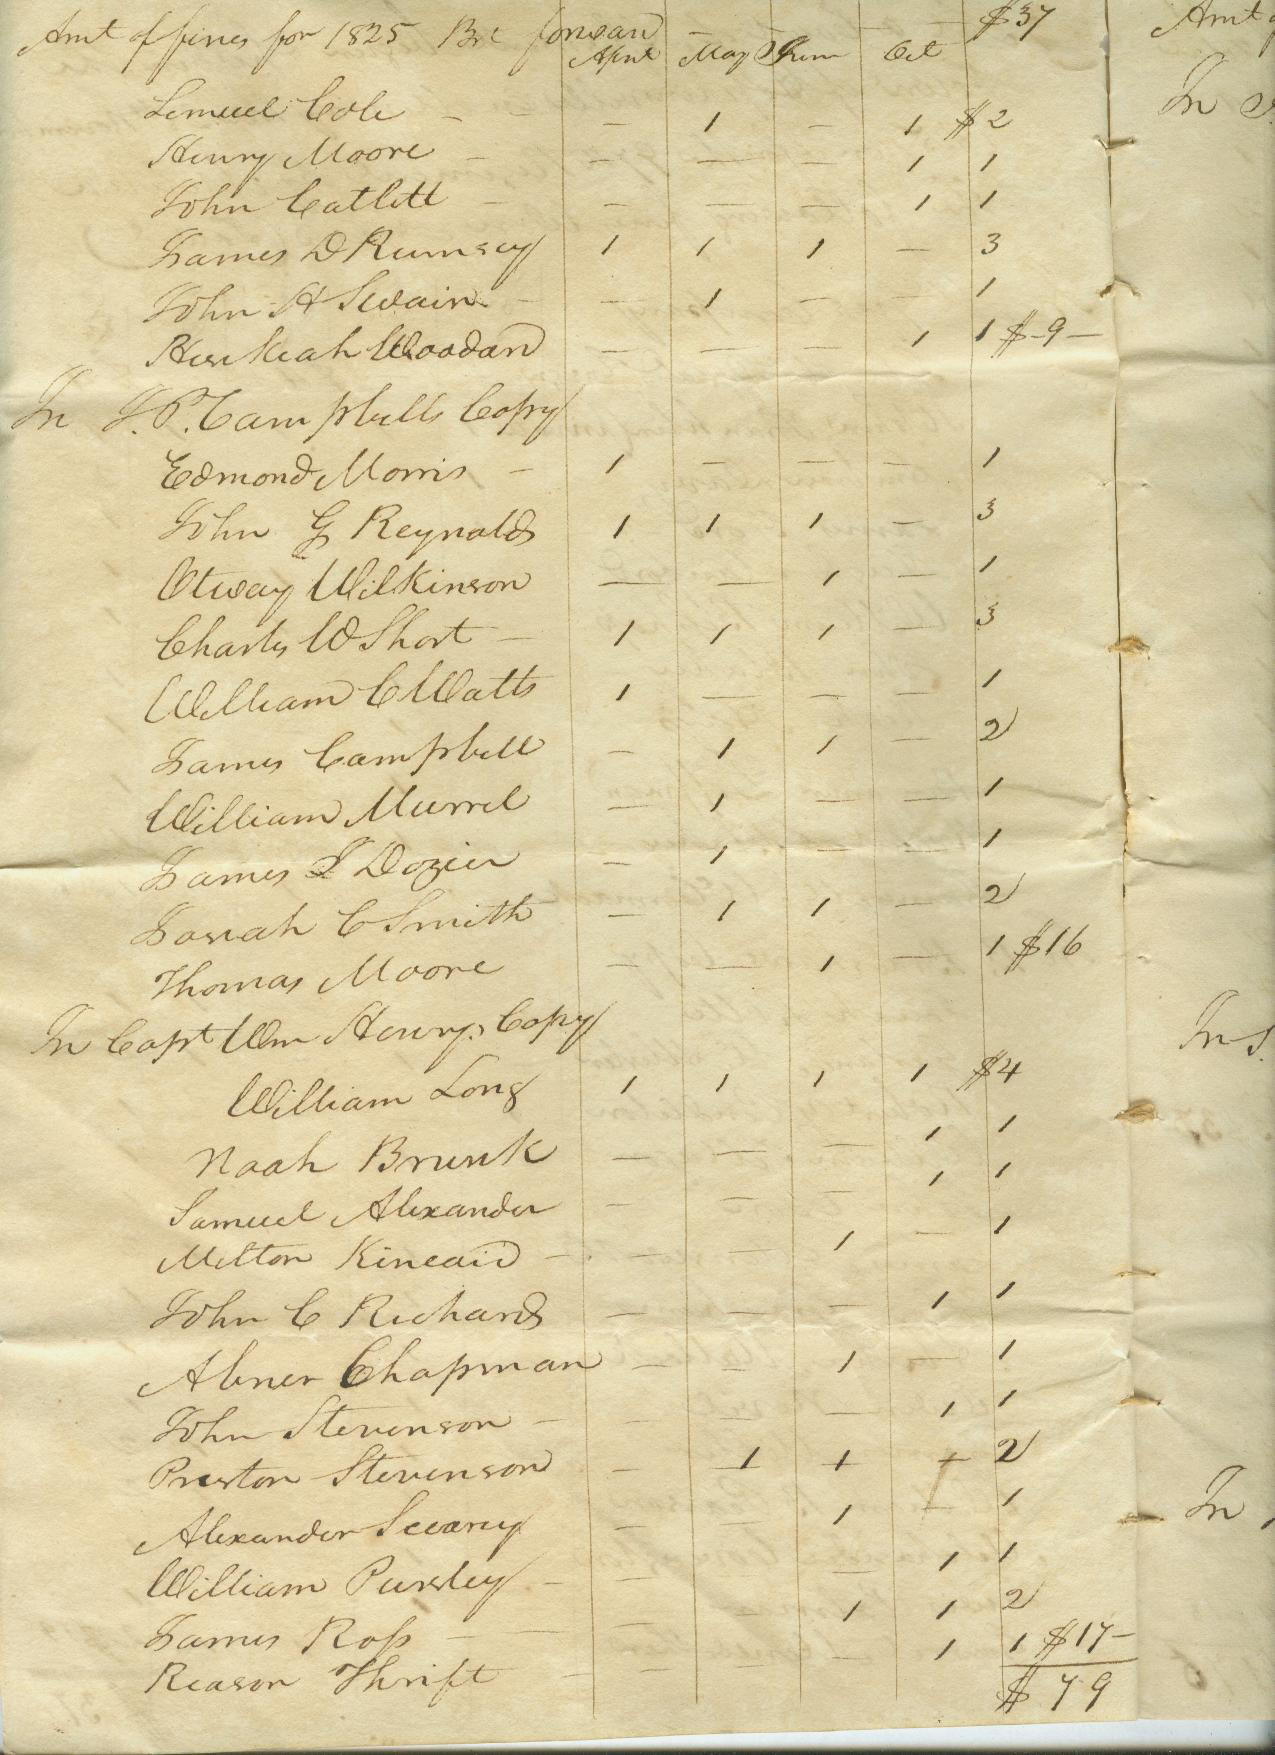 Amt of fines for 1825 Brt forward — — $37
April May June Oct
Lemuel Cole - - — 1 — 1 $2
Henry Moore - — — — 1 1
John Catlett - — — — 1 1
James D Rumsey 1 1 1 — 3
John H Swain - — 1 — — 1
Hezekiah Woodard — — — 1 1 $-9-
In J. P. Campbells Copy
Edmond Morris - 1 — — — 1
John G Reynolds 1 1 1 — 3
Otway Wilkinson — — 1 — 1
Charles W Short - 1 1 1 — 3
William C Watts 1 — — — 1
James Campbell — 1 1 — 2
William Murrel — 1 — — 1
James I Dozier — 1 — — 1
Josiah C Smith — 1 1 — 2
Thomas Moore — — 1 — 1 $16
In Capt Wm Henrys Copy
William Long 1 1 1 1 $4
Noah Brunk — — — 1 1
Samuel Alexander — — — 1 1
Milton Kincaid - — — 1 — 1
John C Richards — — — 1 1
Abner Chapman — — 1 — 1
John Stevenson - — — — 1 1
Preston Stevenson — 1 + + 2
Alexander — — 1 — 1
William Pursley - — — — 1 1
James Ross - — — 1 1 2
Reason Thrift - — — — 1 1 $17-
$79
Amt
In
In
In